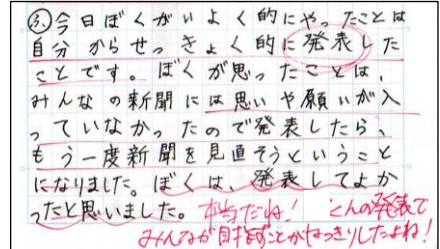 ふ今日ぼくがいよく的にやったことは
自分からせっきょく的に発表した
ことです。ぼくが思ったことは、
みんなの新聞には思いや願いが入
っていなかったので発表したら、
もう一度新聞を見直そうということ
になりました。ぼくは、発表してよか
ったと思いました。本当だね！この発表で
みんなが目ざすことがはっきりしたよね！